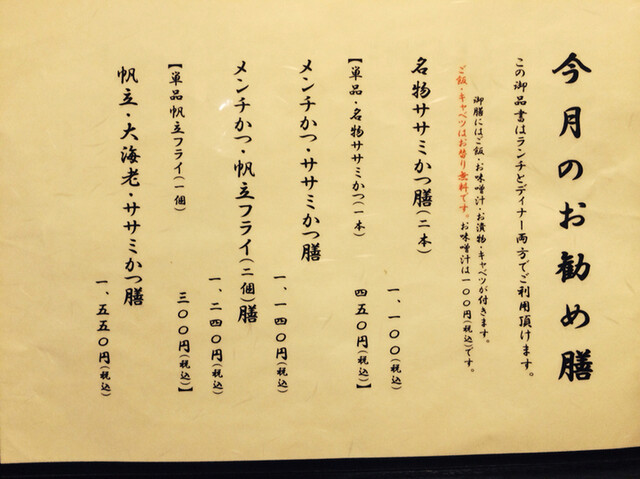 今月のお勧め膳
この御品書はランチとディナー両方でご利用頂けます。
御膳にはご飯・お味噌汁・お漬物・キャベツが付きます。
ご飯・キャベツはお替り無料です。お味噌汁は一〇〇円(税込)です。
名物ササミかつ膳(二本)
一、一〇〇(税込)
【単品・名物ササミかつ(一本)
四五〇円(税込)】
メンチかつ・ササミかつ膳
一、一四〇円(税込)
メンチかつ・帆立フライ(二個)膳
一、二四〇円(税込)
【単品帆立フライ(一個)
三〇〇円(税込)】
帆立・大海老・ササミかつ膳
一、五五〇円(税込)